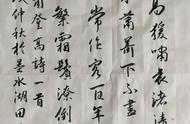 高猿嘯哀渚清
蕭蕭下不盡
常作客百年
繁霜鬢潦倒
甫登高詩一首
戌仲秋於墨水湖田